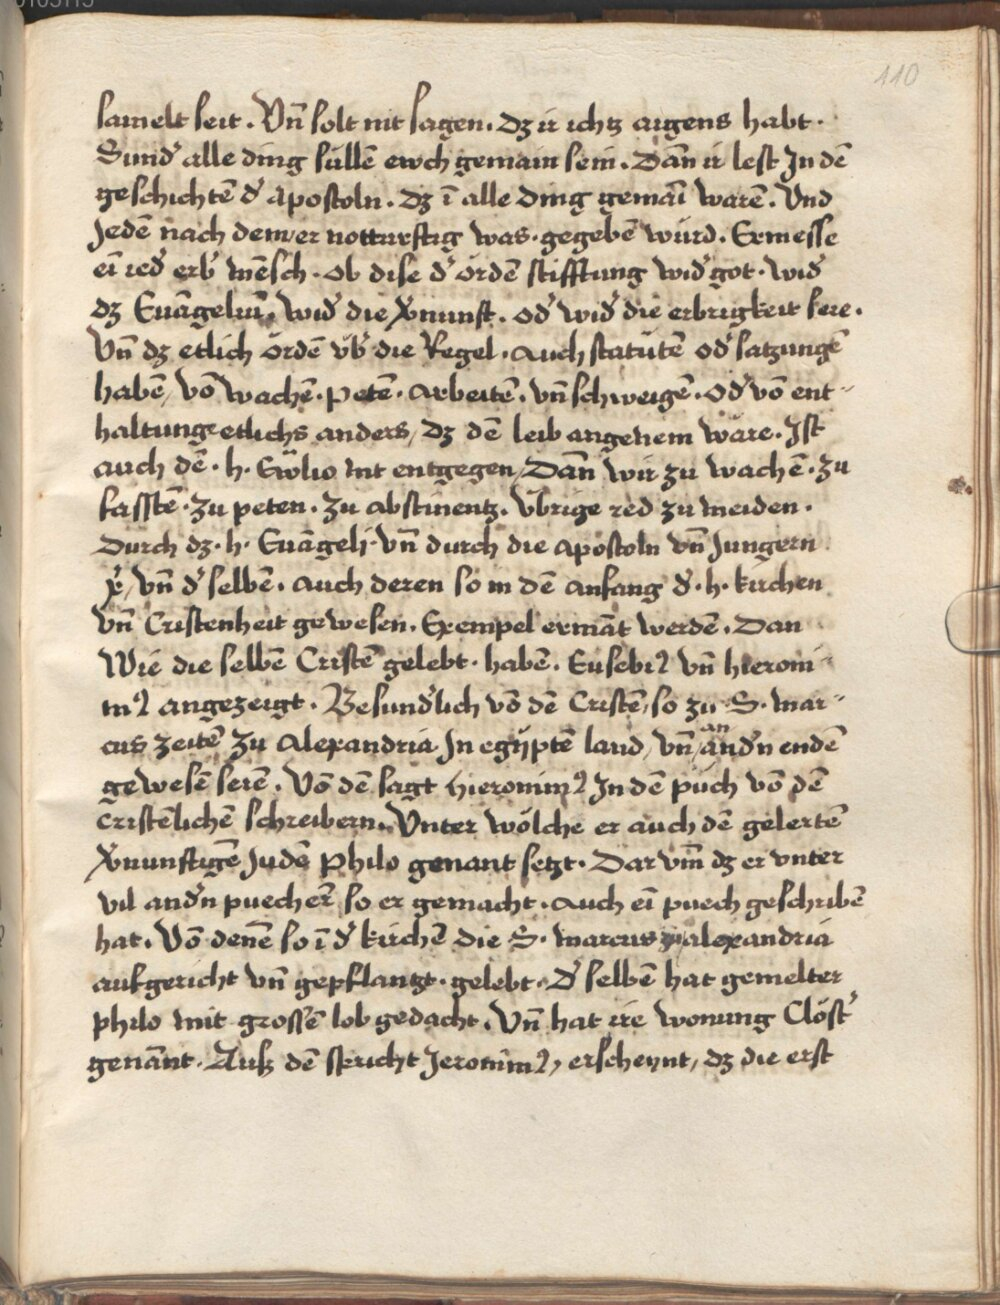 110
samelt seit. Vn̄ solt nit sagen. dz ir ichtz aigens habt.
Sund' alle ding süllē ewch gemain sein. Dan̄ ir lest Jn dē
geschichtē d' Apostoln. dz ī alle ding gemaī warē. Vnd
Jedē nach dem er notturftig was. gegebē würd. Ermesse
eī ied' erb' mēsch. ob dise d' ördē stifftung wid' got. wid'
dz Euāgeliū. wid' die v'nunft. od' wid' die erbrigkeit seie.
Vn̄ dz etlich ördē üb' die Regel. auch statutē od' satzungē
habē, vō wachē. petē. arbeitē. vn̄ schweigē. od' vō ent-
haltunge etlichs anders, dz dē leib angenem wäre. Jst
auch dē. h. Ew̄lio nit entgegen, Dan̄ wir zu wachē. zu
fasstē. zu peten. zu abstinentz. vbrige red zu meiden.
Durch dz. h. Euāgelj. vn̄ durch die apostoln vn̄ Jungern
x̄, vn̄ d' selbē. auch deren so in dē anfang d'. h. kirchen
vn̄ Cristenheit gewesen. Exempel ermāt werdē. Dan
Wie die selbē Cristē gelebt. habē. Eusebiꝰ vn̄ hieroni-
mꝰ angezeigt. Besund'lich vō dē Cristē, so zu. S. mar-
cus zeitē zu Alexandria Jn egÿptē land, vn̄ an and'n endē
gewesē seiē. Vō dē sagt hieronimꝰ Jn dē püch vō dē
cristēlichē schreibern. Vnter wölche er auch dē gelertē
v'nunftigē Judē Philo genant setzt. Dar vm̄ dz er vnter
vil and'n puechēr so er gemacht. auch eī puech geschribē
hat. Vō denē so ī d' kirchē die S. marcus zu alexandria
aufgericht vn̄ gepflantzt. gelebt. D' selbē hat gemelter
philo mit grossē lob gedacht. Vn̄ hat ire wonung Clöst'
genānt. Auß dē spricht Jeronimꝰ, erscheynt, dz die erst